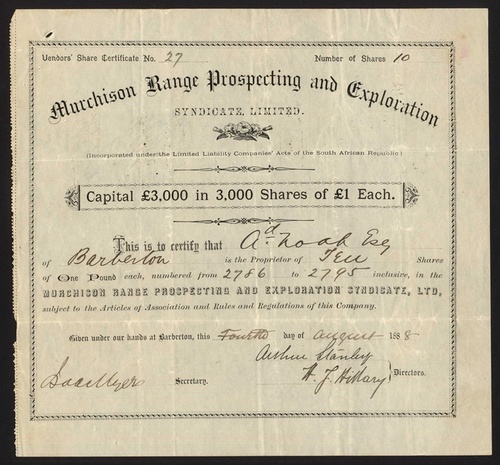 Vendors' Share Certificate No. 27 Number of Shares 10
Murchison Range Prospecting and Exploration
SYNDICATE, LIMITED.
(Incorporated under the Limited Liability Companies' Acts of the South African Republic)
Capital £3,000 in 3,000 Shares of £1 Each.
This is to certify that Ad. Noah Esq
of Barberton is the Proprietor of Ten Shares
of One Pound each, numbered from 2786 to 2795 inclusive, in the
MURCHISON RANGE PROSPECTING AND EXPLORATION SYNDICATE, LTD,
subject to the Articles of Association and Rules and Regulations of this Company.
Given under our hands at Barberton, this Fourth day of August 1888
Arthur Stanley
Secretary. Directors.